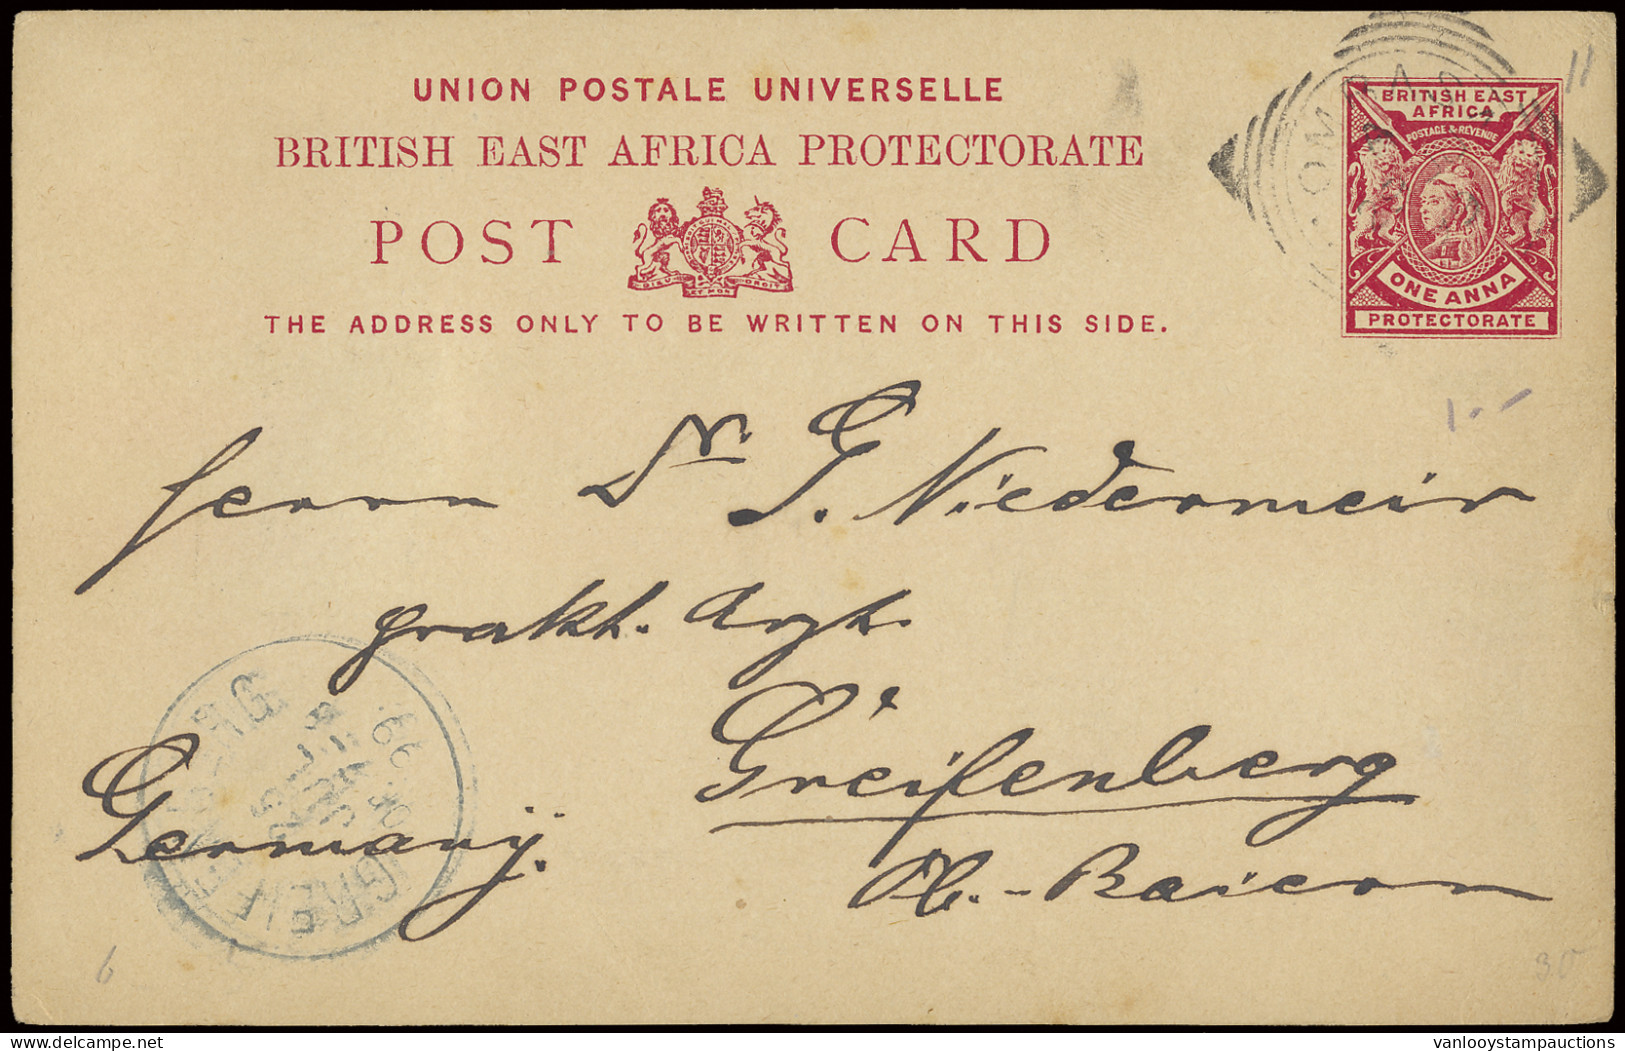 UNION POSTALE UNIVERSELLE
BRITISH EAST AFRICA PROTECTORATE
POST CARD
DIEU ET MON DROIT
THE ADDRESS ONLY TO BE WRITTEN ON THIS SIDE.
BRITISH EAST
AFRICA
POSTAGE & REVENUE
ONE ANNA
PROTECTORATE
MOMBASA
11
1.-
Herrn Dr. G. Niedermeir
prakt. Arzt.
Greifenberg
Ob.-Baiern
Germany.
GREIFENBERG
99.
6
30
vanlooystampauctions